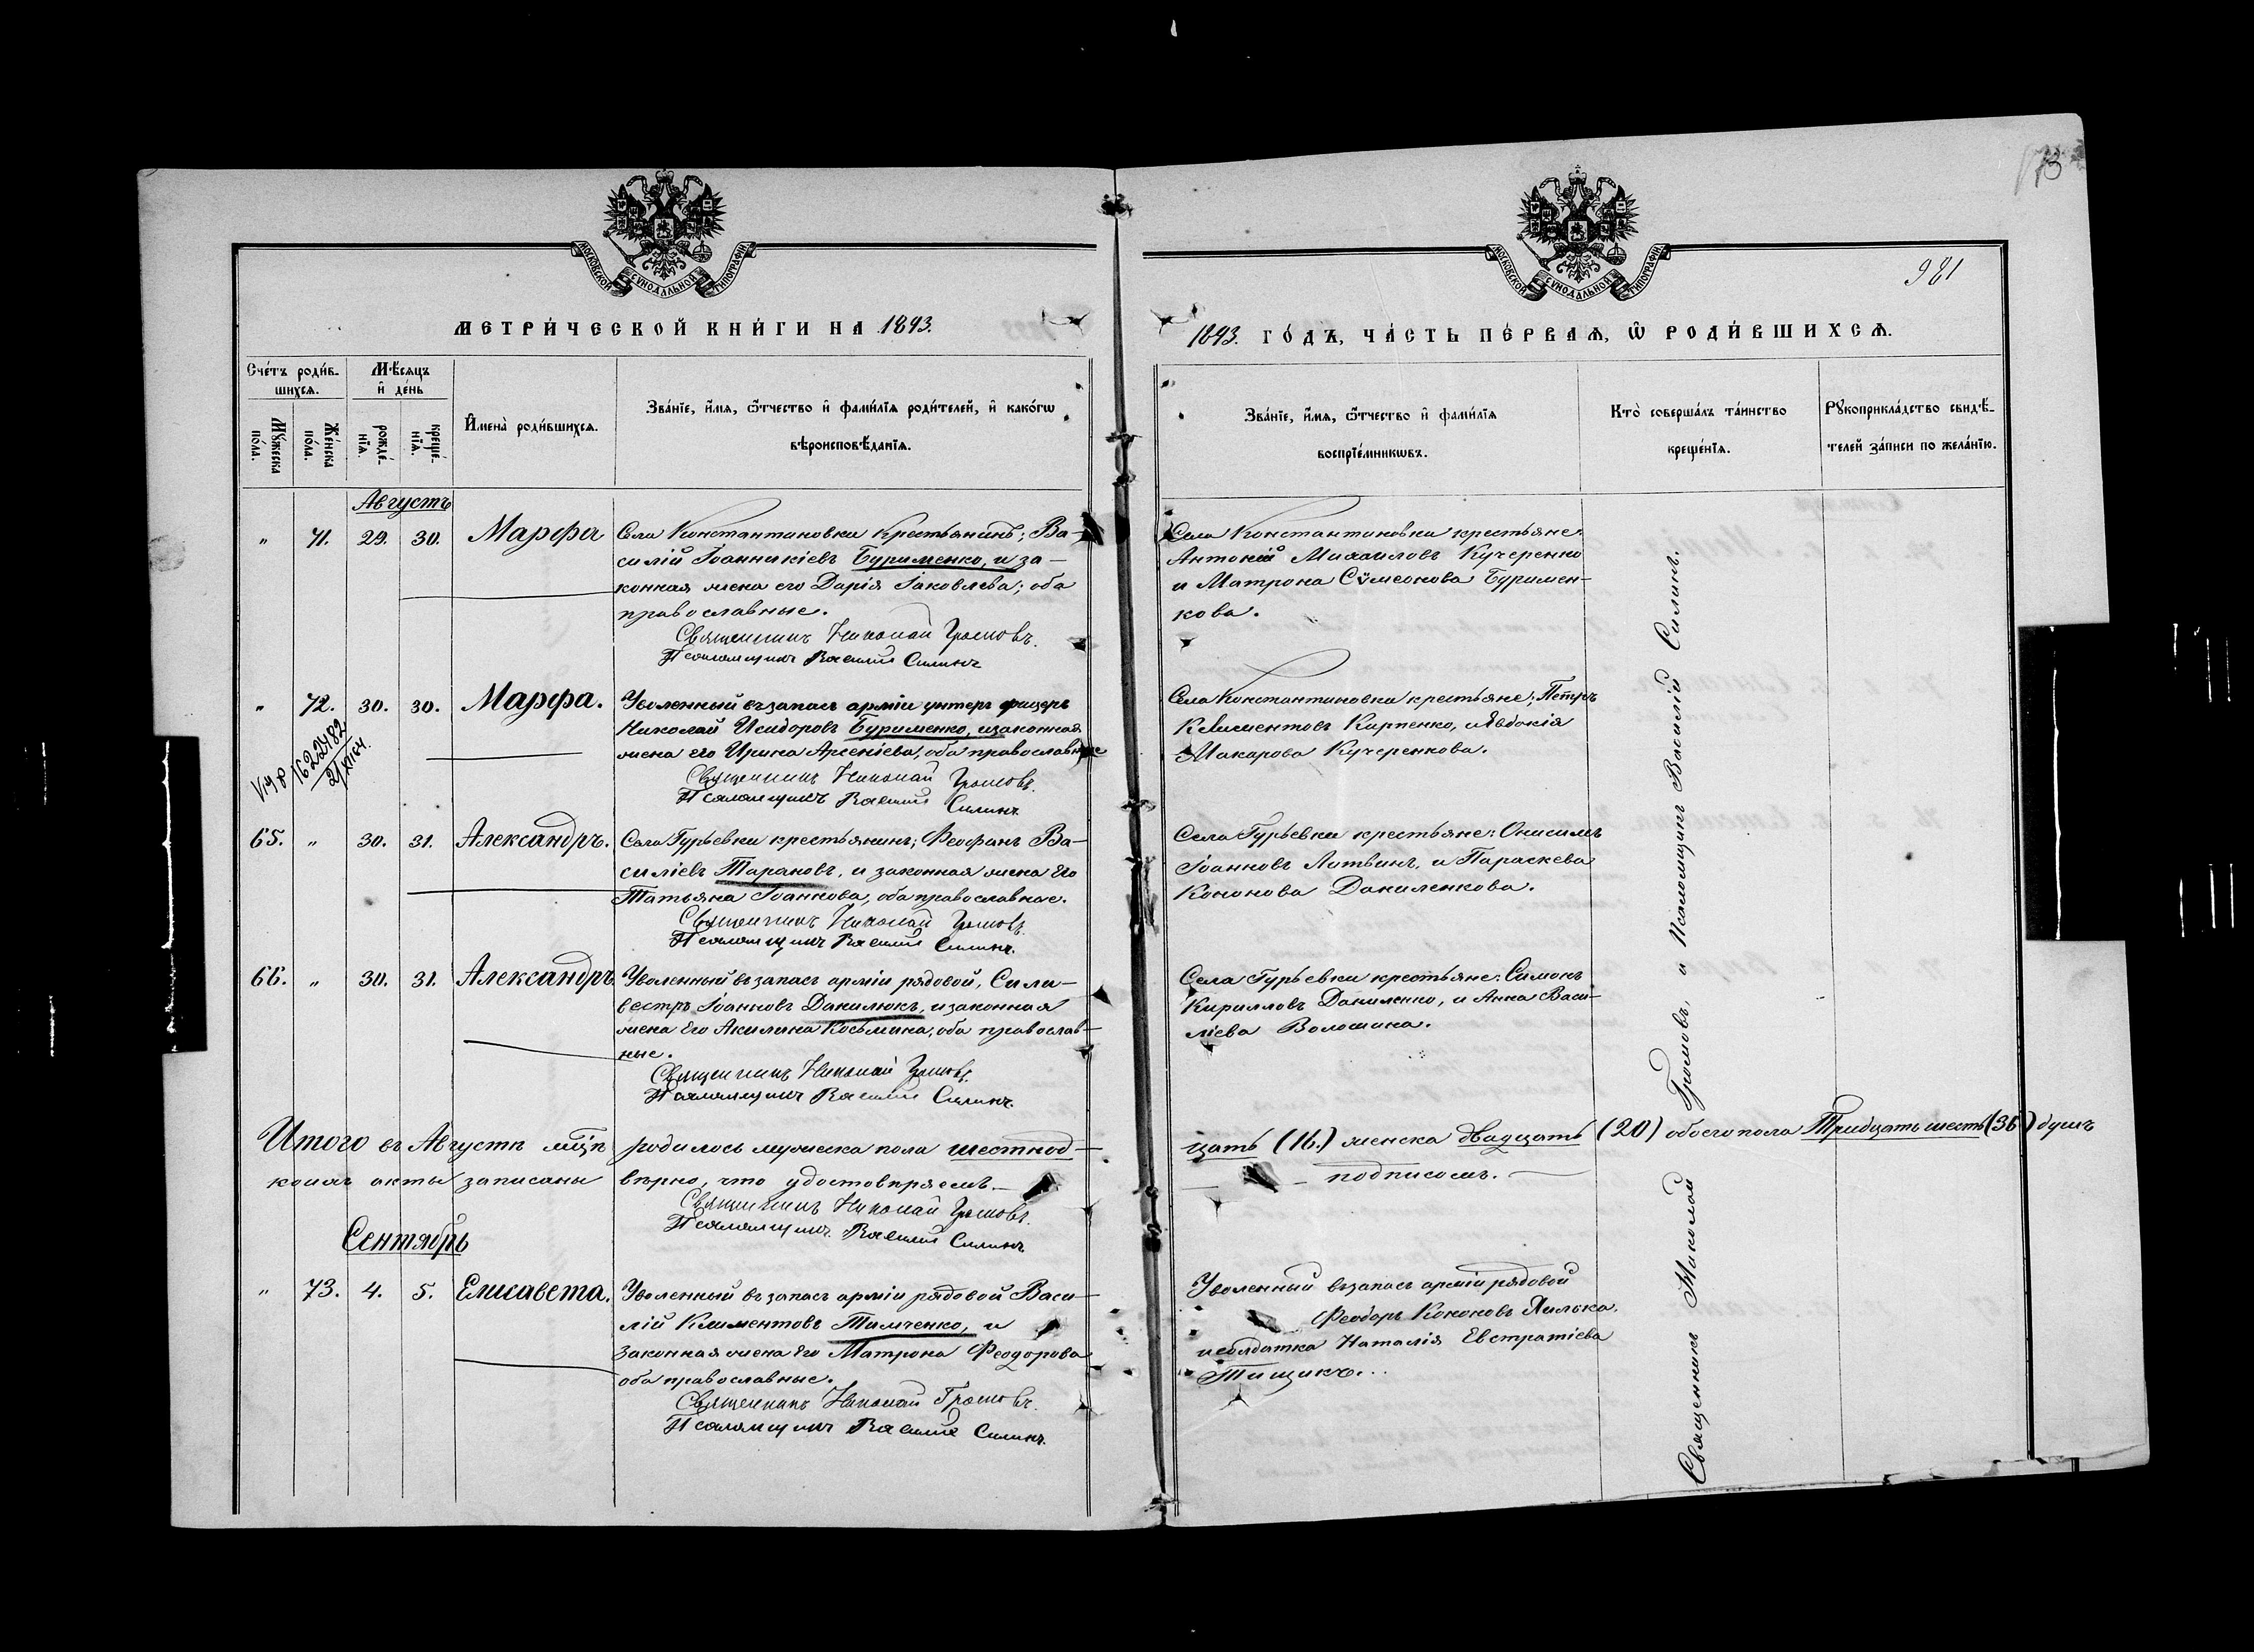 173
МОСКОВСКОЙ СУНОДАЛЬНОЙ ТИПОГРАФІИ
МЕТРИ́ЧЕСКОЙ КНИ́ГИ НА 1893.
Сче́тъ роди́в-
шихсѧ.
Мѣ́сяцъ
и҆ де́нь
Мꙋ́жеска
по́ла.
Же́нска
по́ла.
рожде́-
нїѧ.
креще́-
нїѧ.
И҆мена̀ роди́вшихсѧ.
Зва́нїе, и҆́мѧ, ѿтчество и҆ фами́лїѧ роди́телей, и҆ како́гѡ
вѣроисповѣ́данїѧ.
Августъ
" 71. 29. 30. Марфа
Села Константиновки крестьянинъ; Ва-
силій Іоанникіевъ Бурименко, и за-
конная жена его Дарія Іаковлева; оба
православные.
Священникъ Николай Громовъ.
Псаломщикъ Василій Силинъ
" 72. 30. 30. Марфа.
Уволенный въ запасъ арміи унтеръ офицеръ
Николай Исидоровъ Бурименко, и законная
жена его Ирина Арсеніева, оба православные
Священникъ Николай Громовъ.
Псаломщикъ Василій Силинъ.
1622482
21/XII 54.
65. " 30. 31. Александръ.
Села Гурьевки крестьянинъ; Феофанъ Ва-
силіевъ Тарановъ, и законная жена его
Татьяна Іоаннова, оба православные.
Священникъ Николай Громовъ.
Псаломщикъ Василій Силинъ.
66. " 30. 31. Александръ.
Уволенный въ запасъ арміи рядовой, Сили-
вестръ Іоанновъ Данилюкъ, и законная
жена его Акилина Косьмина, оба православ-
ные.
Священникъ Николай Громовъ.
Псаломщикъ Василій Силинъ.
Итого въ Августѣ мцѣ родилось мужеска пола шестнад-
коихъ акты записаны вѣрно, что удостовѣряемъ.
Священникъ Николай Громовъ.
Псаломщикъ Василій Силинъ
Сентябрь
" 73. 4. 5. Елисавета.
Уволенный въ запасъ арміи рядовой Васи-
лій Климентовъ Тимченко, и
законная жена его Матрона Феодорова
оба православные.
Священникъ Николай Громовъ.
Псаломщикъ Василій Силинъ.
МОСКОВСКОЙ СУНОДАЛЬНОЙ ТИПОГРАФІИ
981
1893. ГО́ДЪ, ЧА́СТЬ ПЕ́РВАѦ, Ѽ РОДИ́ВШИХСѦ.
Зва́нїе, и҆́мѧ, ѿтчество и҆ фами́лїѧ
воспрїе́мникѡвъ.
Кто̀ соверша́лъ та́инство
креще́нїѧ.
Рꙋкоприкла́дство свидѣ́-
телей за́писи по жела́нїю.
Села Константиновки крестьяне:
Антоній Михаиловъ Кучеренко
и Матрона Сѵмеонова Буримен-
кова.
Села Константиновки крестьяне; Петръ
Климентовъ Карпенко, и Явдокія
Макарова Кучеренкова.
Села Гурьевки крестьяне: Онисимъ
Іоанновъ Литвинъ, и Параскева
Кононова Даниленкова.
Села Гурьевки крестьяне: Симонъ
Кирилловъ Даниленко, и Анна Васи-
ліева Волошина.
цать (16.) женска двадцать (20) обоего пола Тридцать шесть (36) душъ
подписомъ.
Уволенный въ запасъ арміи рядовой
Феодоръ Кононовъ
и солдатка Наталія Евстратіева
Тищикъ.
Священникъ Николай Громовъ, и Псаломщикъ Василій Силинъ.